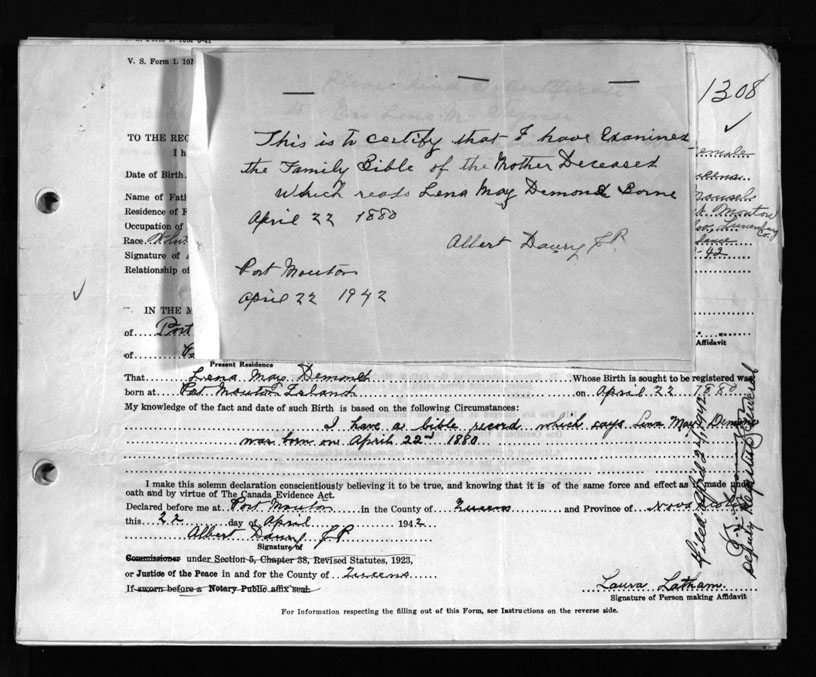 V. S. Form 1. 10
1308
This is to certify that I have Examined
the Family Bible of the Mother Deceased
Which reads Lena May Demond Borne
April 22 1880
Albert Daury J.P.
Port Mouton
April 22 1942
TO THE REG
I h
Date of Birth
Name of Fath
Residence of F
Occupation of
Race.
Signature of
Relationship of
emale
Mouton
Lunenburg
Co.
-42
IN THE M
of Port
of
Affidavit
Present Residence
That Lena May Demond Whose Birth is sought to be registered was
born at Port Mouton Island on April 22 1880
My knowledge of the fact and date of such Birth is based on the following Circumstances:
I have a bible record which says Lena May Demond
was born on April 22nd 1880
I make this solemn declaration conscientiously believing it to be true, and knowing that it is of the same force and effect as if made under
oath and by virtue of The Canada Evidence Act.
Declared before me at Port Mouton in the County of Queens and Province of Nova Scotia
this 22 day of April 1942
Albert Daury J.P.
Signature of
Commissioner under Section 5, Chapter 38, Revised Statutes, 1923,
or Justice of the Peace in and for the County of Queens
If sworn before a Notary Public affix seal.
Laura Latham
Signature of Person making Affidavit
For Information respecting the filling out of this Form, see Instructions on the reverse side.
Filed April 24/1942
Deputy Registrar General